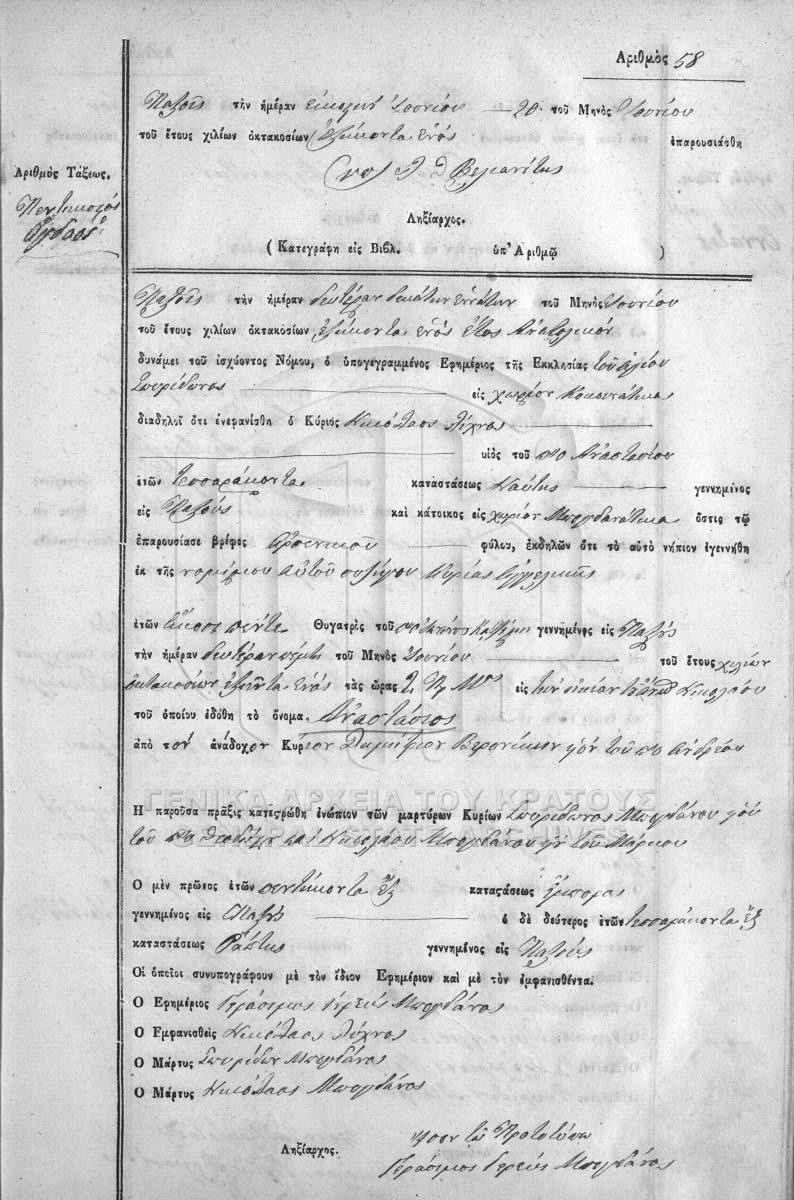 Αριθμὸς 58
Παξοῖς τὴν ἡμέραν εἰκοστὴν Ἰουνίου 20 τοῦ Μηνὸς Ἰουνίου
τοῦ ἔτους χιλίων ὀκτακοσίων ἑξήκοντα ἑνὸς ἐπαρουσιάσθη
Βελιανίτης
Αριθμὸς Τάξεως.
Πεντηκοστὸς
ὄγδοος
Ληξίαρχος.
( Κατεγράφη εἰς Βιβλ. ὑπ' Αριθμῷ )
Παξοῖς τὴν ἡμέραν δευτέραν δεκάτην ἐννάτην τοῦ Μηνὸς Ἰουνίου
τοῦ ἔτους χιλίων ὀκτακοσίων ἑξήκοντα ἑνὸς ἔτος Ἀνατολικὸν
δυνάμει τοῦ ἰσχύοντος Νόμου, ὁ ὑπογεγραμμένος Ἐφημέριος τῆς Εκκλησίας τοῦ Ἁγίου
Σπυρίδωνος εἰς χωρίον
διαδηλοῖ ὅτι ἐνεφανίσθη ὁ Κύριος Νικόλαος Λύχνος
υἱὸς τοῦ ποτὲ Ἀναστασίου
ἐτῶν τεσσαράκοντα καταστάσεως Ναύτης γεννημένος
εἰς Παξοὺς καὶ κάτοικος εἰς χωρίον Μπογδανάτικα ὅστις τῷ
ἐπαρουσίασε βρέφος ἀρσενικοῦ φύλου, ἐκδηλῶν ὅτι τὸ αὐτὸ νήπιον ἐγεννήθη
ἐκ τῆς νομίμου αὐτοῦ συζύγου Κυρίας Ἀγγελικῆς
ἐτῶν εἴκοσι πέντε Θυγατρὸς τοῦ γεννημένης εἰς Παξοὺς
τὴν ἡμέραν δευτέραν πέμπτην τοῦ Μηνὸς Ἰουνίου τοῦ ἔτους χιλίων
ὀκτακοσίων ἑξήκοντα ἑνὸς τὰς ὥρας 2 Π. Μ. εἰς τὴν οἰκίαν Νικολάου
τοῦ ὁποίου ἐδόθη τὸ ὄνομα Ἀναστάσιος
ἀπὸ τὸν ἀνάδοχον Κύριον Δημήτριον Βερονίκην υἱὸν τοῦ ποτὲ Ἀνδρέου
ΓΕΝΙΚΑ ΑΡΧΕΙΑ ΤΟΥ ΚΡΑΤΟΥΣ
GENERAL STATE ARCHIVES
Η παροῦσα πρᾶξις κατεστρώθη ἐνώπιον τῶν μαρτύρων Κυρίων Σπυρίδωνος Μπογδάνου υἱοῦ
τοῦ ποτὲ καὶ Νικολάου Μπογδάνου τοῦ Μάρκου
Ο μὲν πρῶτος ἐτῶν πεντήκοντα ἓξ καταστάσεως ἔμπορος
γεννημένος εἰς Παξοὺς ὁ δὲ δεύτερος ἐτῶν τεσσαράκοντα ἓξ
καταστάσεως Ράπτης γεννημένος εἰς Παξοὺς
Οἱ ὁποῖοι συνυπογράφουν μὲ τὸν ἴδιον Εφημέριον καὶ μὲ τὸν ἐμφανισθέντα.
Ο Εφημέριος Γεράσιμος ἱερεὺς Μπογδάνος
Ο Εμφανισθεὶς Νικόλαος Λύχνος
Ο Μάρτυς Σπυρίδων Μπογδάνος
Ο Μάρτυς Νικόλαος Μπογδάνος
ἴσον τῷ πρωτοτύπῳ
Ληξίαρχος.
Γεράσιμος Ἱερεὺς Μπογδάνος